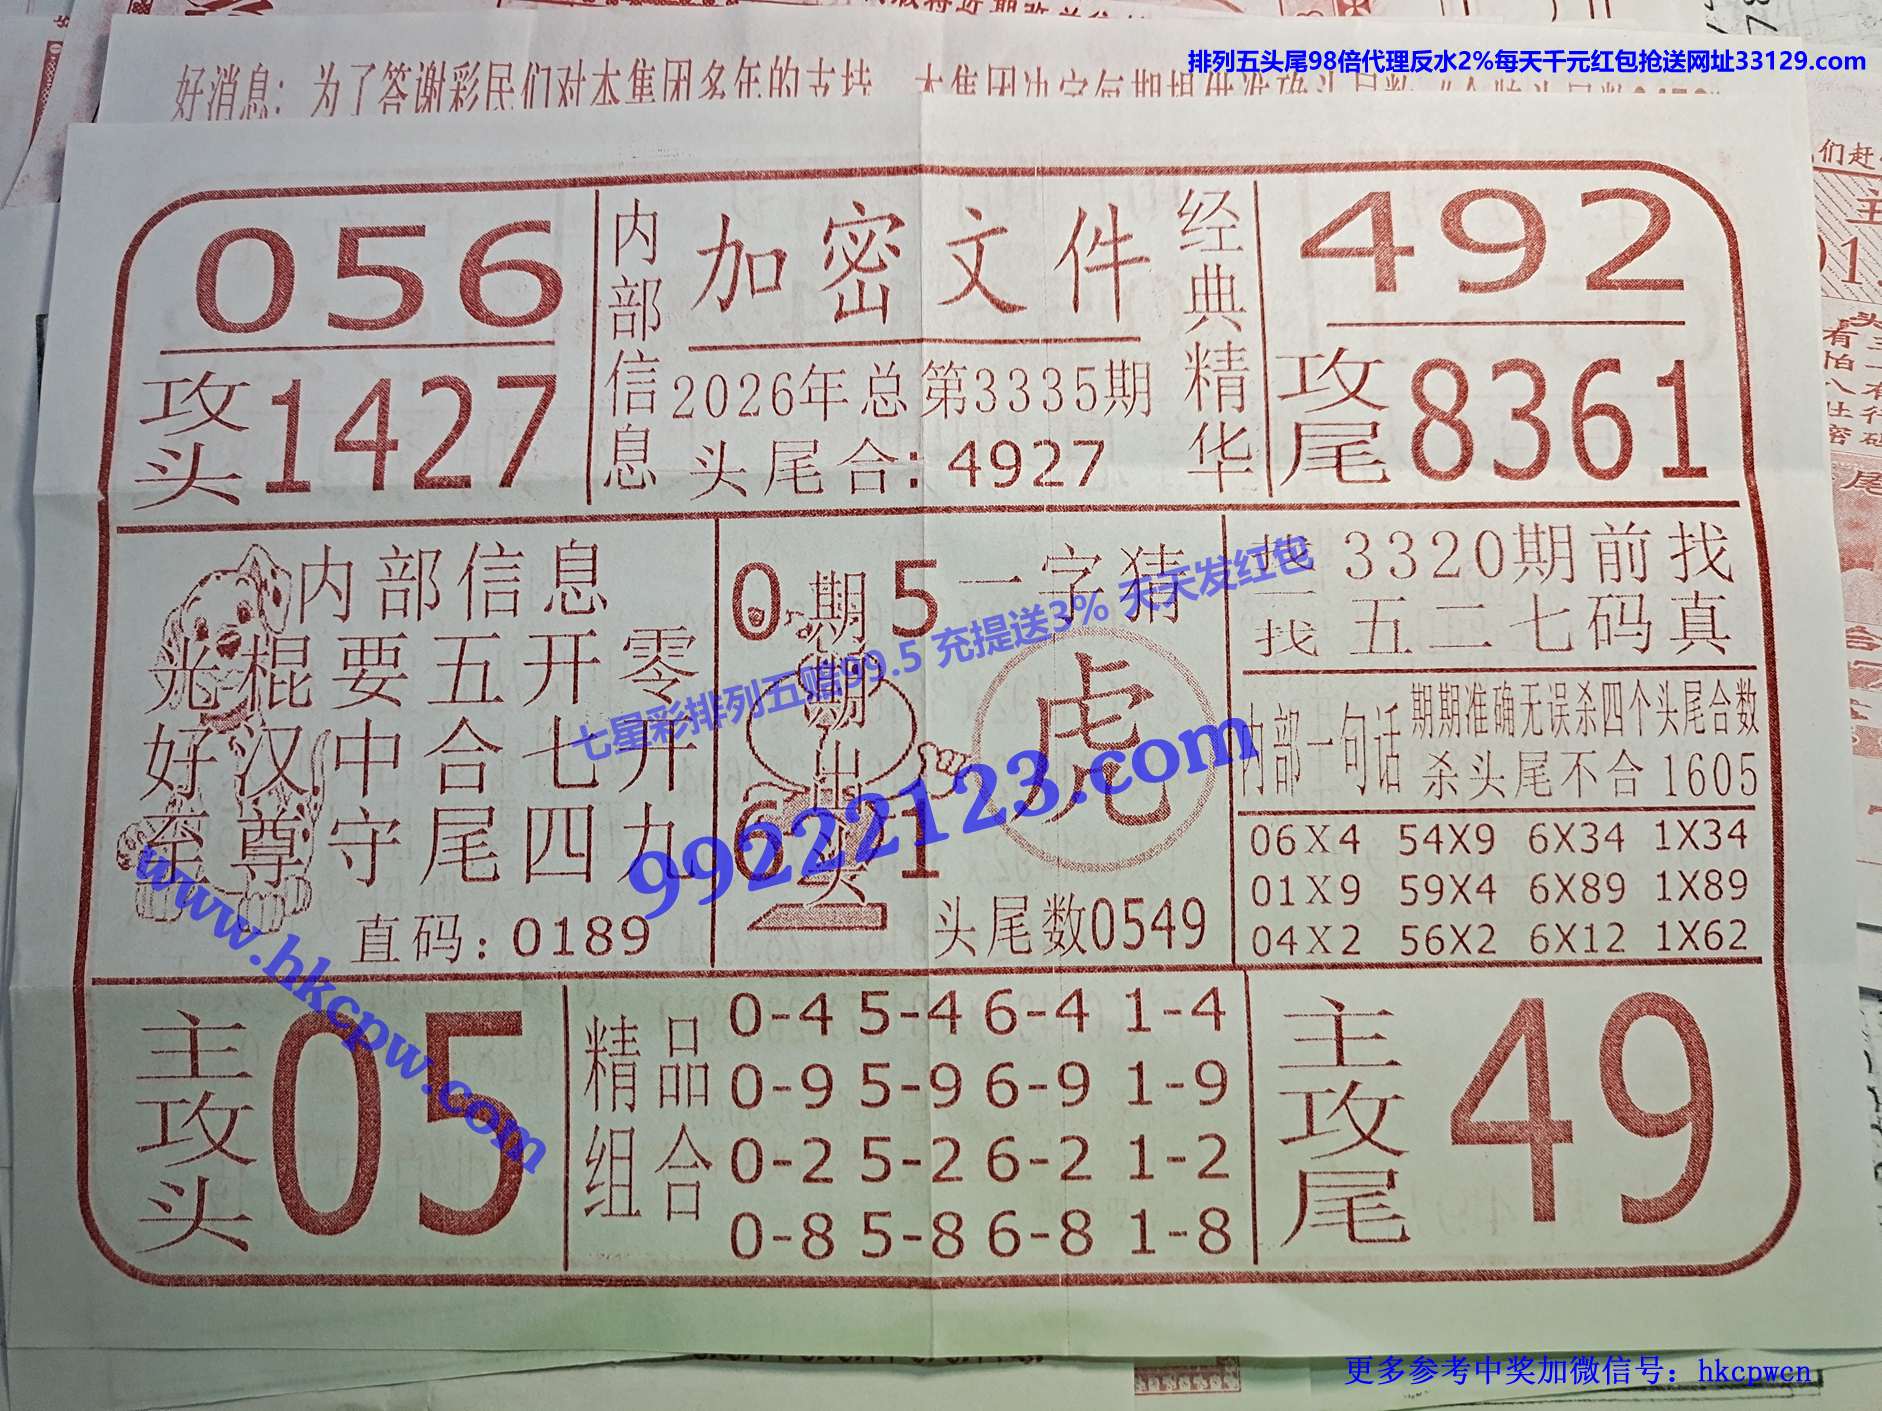 排列五头尾98倍代理反水2%每天千元红包抢送网址33129.com
好消息：为了答谢彩民们对本集团多年的支持
056
攻头1427
内部信息
加密文件
2026年总第3335期
头尾合：4927
经典精华
492
攻尾8361
内部信息
光棍要五开零
好汉中合七开
至尊守尾四九
直码：0189
0期5
期期出头
6 1
一字猜
虎
头尾数0549
找一找
3320期前找
五二七码真
内部一句话
期期准确无误杀四个头尾合数
杀头尾不合1605
06X4 54X9 6X34 1X34
01X9 59X4 6X89 1X89
04X2 56X2 6X12 1X62
主攻头
05
精品组合
0-4 5-4 6-4 1-4
0-9 5-9 6-9 1-9
0-2 5-2 6-2 1-2
0-8 5-8 6-8 1-8
主攻尾
49
七星彩排列五赔99.5 充提送3% 天天发红包
99222123.com
www.hkcpw.com
更多参考中奖加微信号：hkcpwcn